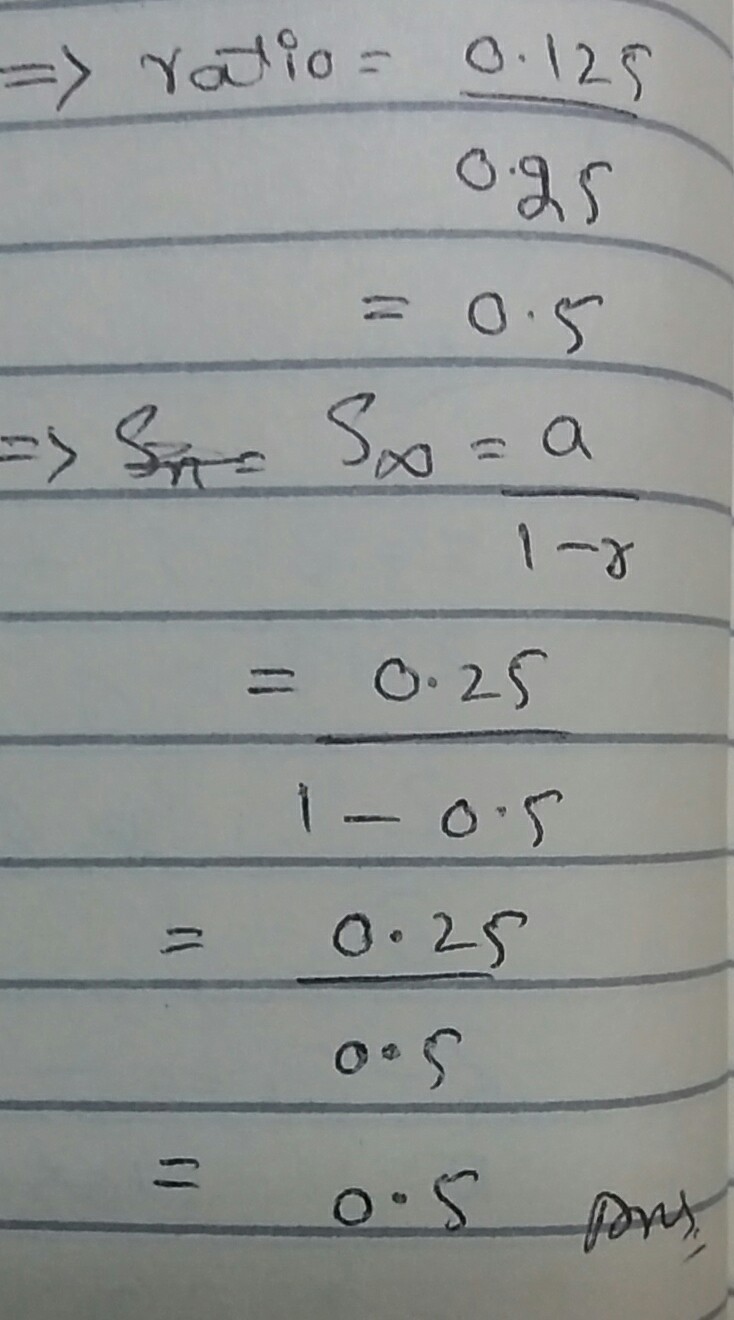 => ratio = 0.125
0.25
= 0.5
=> Sn = S∞ = a
1-r
= 0.25
1 - 0.5
= 0.25
0.5
= 0.5 Ans.